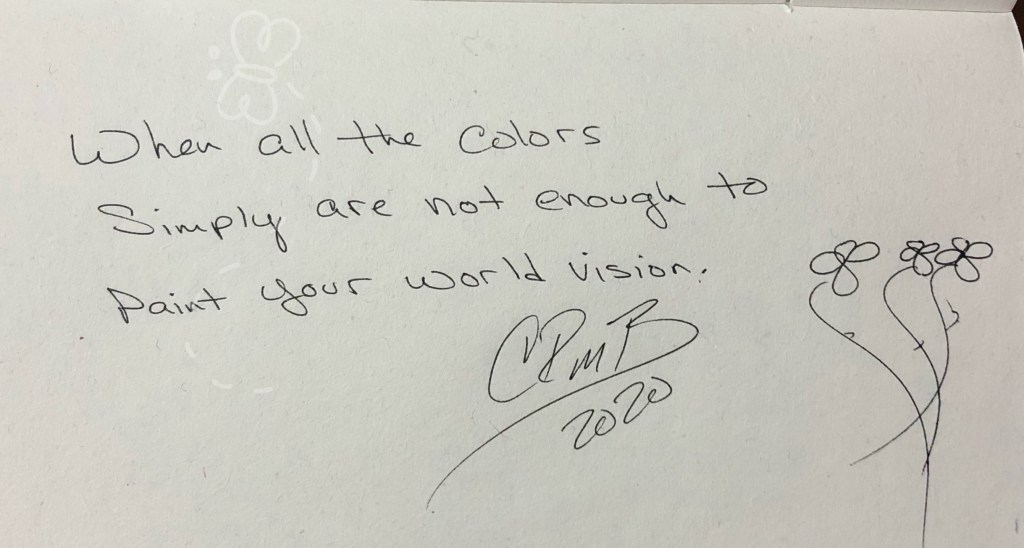 When all the colors
Simply are not enough to
Paint your world vision.
CPMB
2020